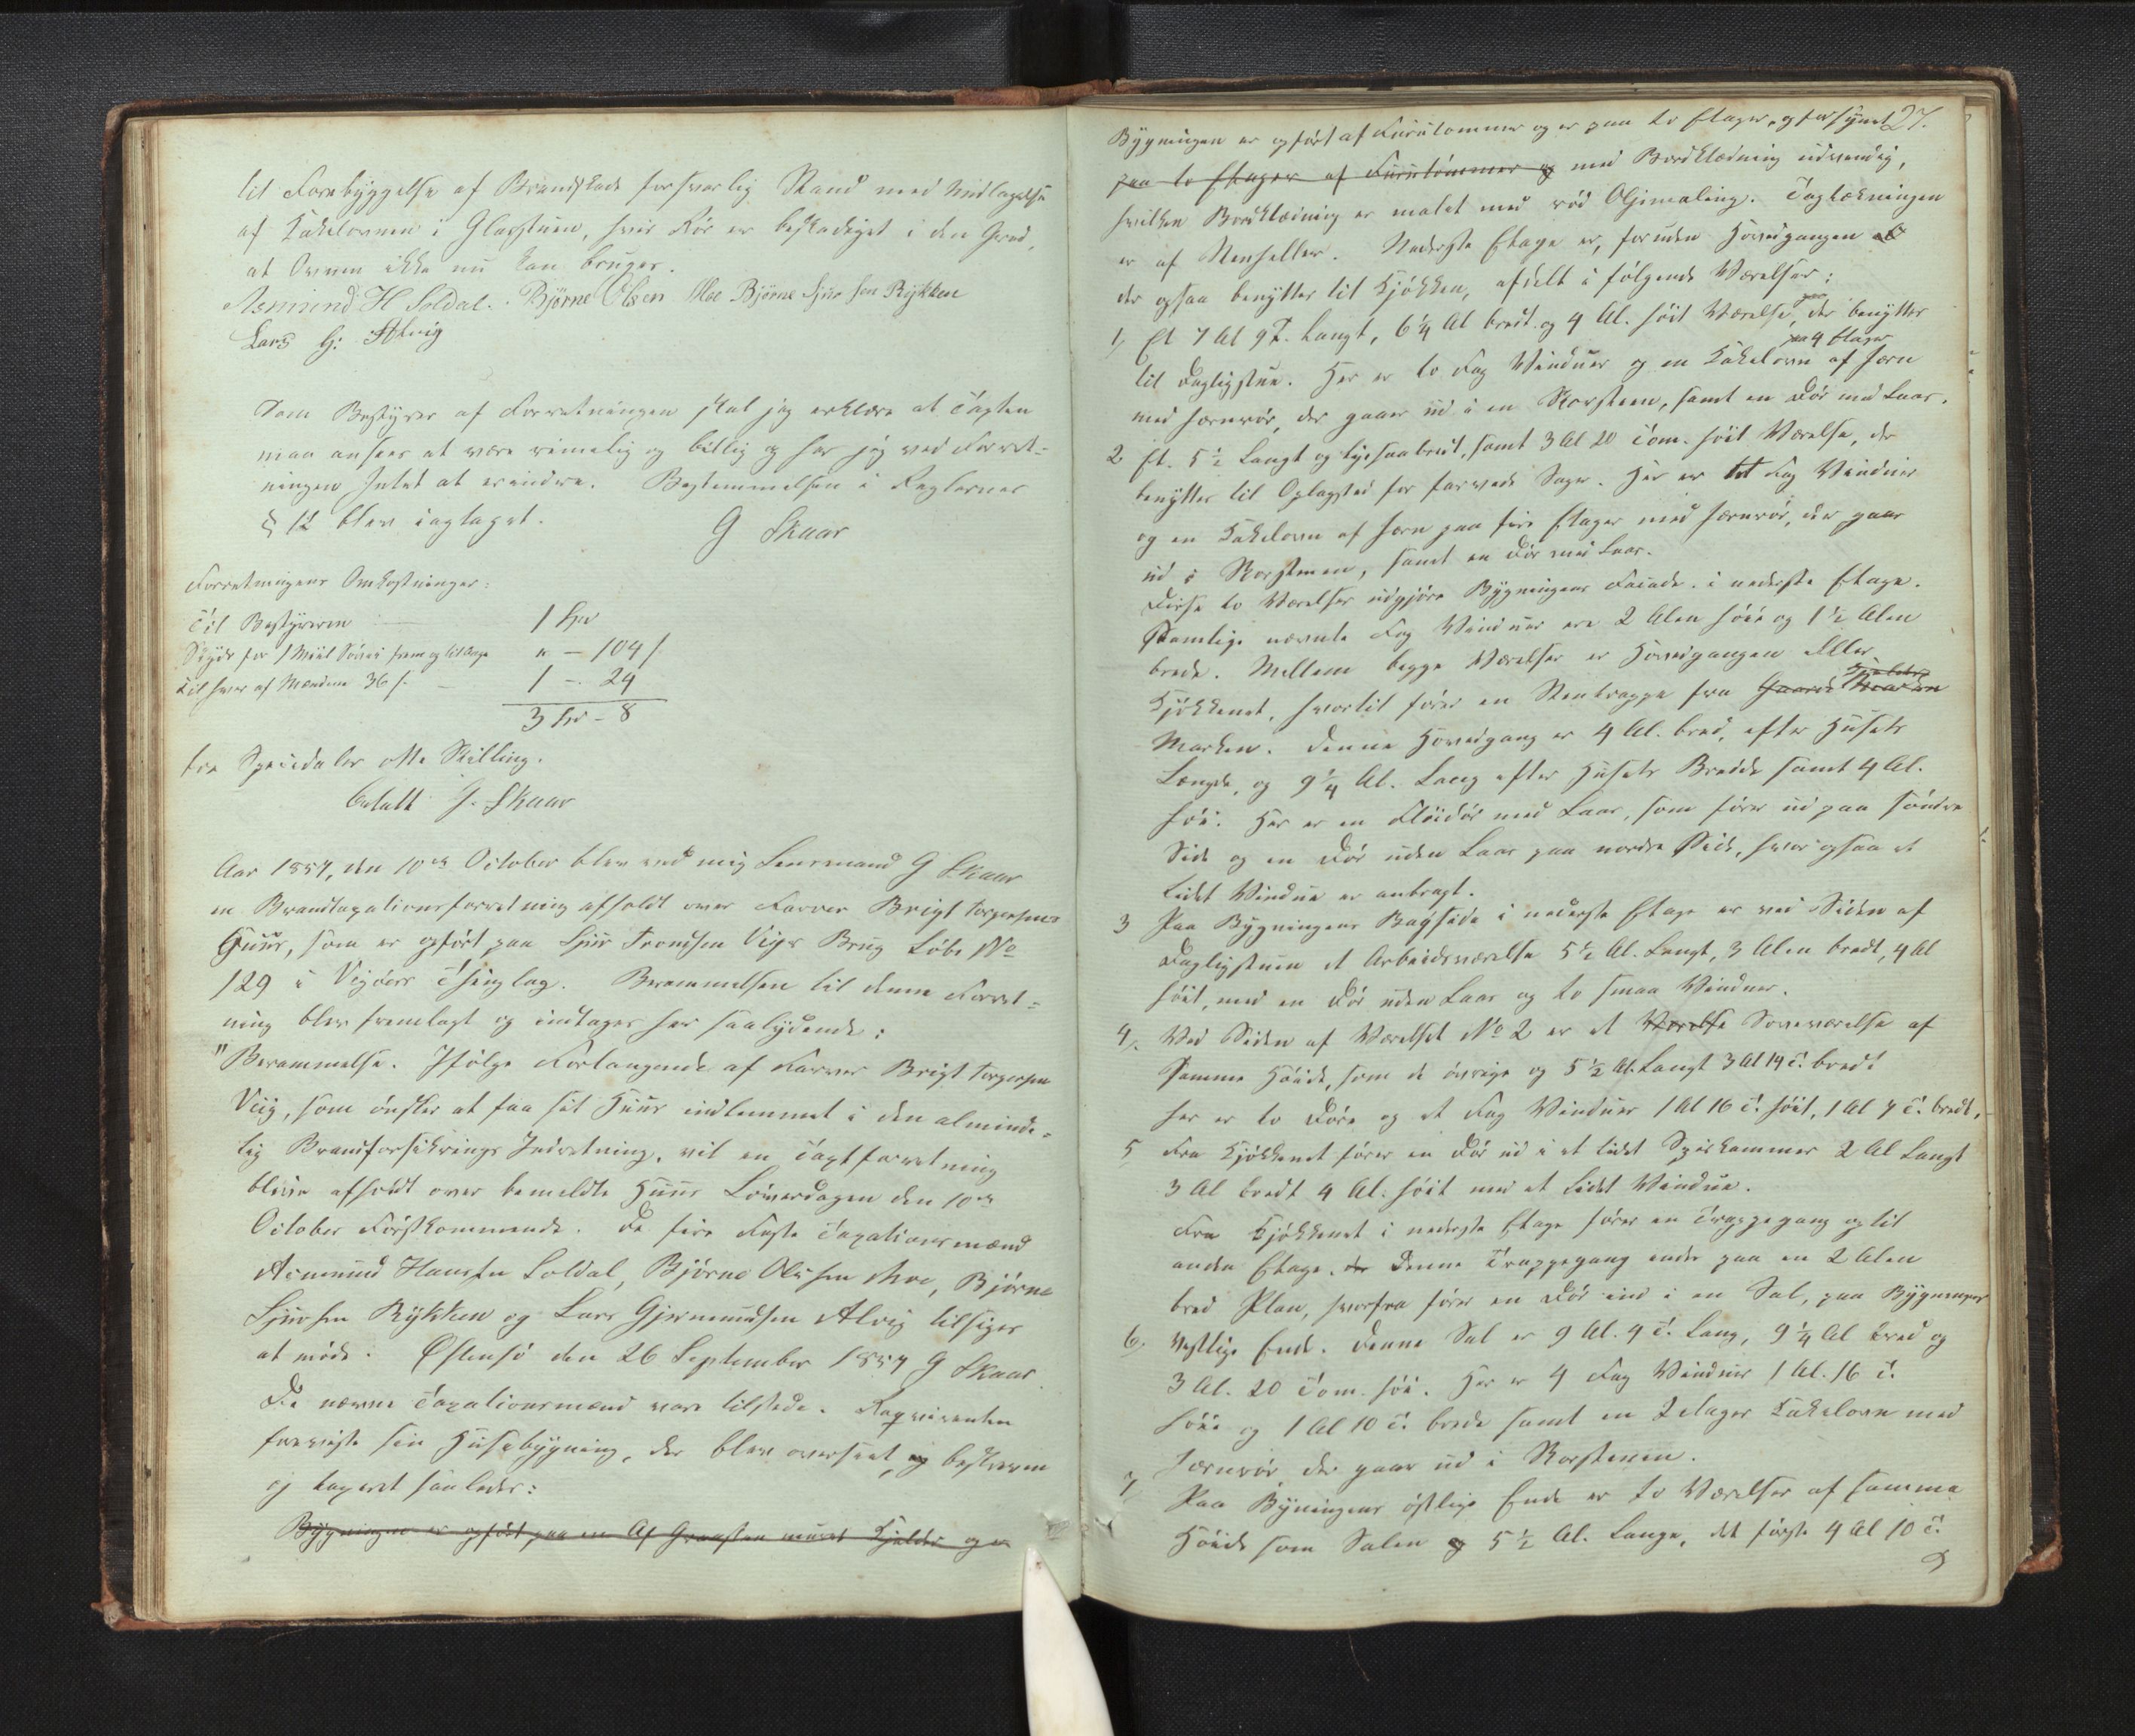 til Forebyggelse af Brandskade forsvarlig Stand med Undtagelse
af Kakelovnen i Glasstuen, hvis Rör er beskadiget i den Grad,
at Ovnen ikke nu kan bruges.
Asmund H Soldal. Björne Olsen Moe Björne Sjursen Rykken
Lars G: Alvig
Som Bestyrer af Forretningen skal jeg erklære at Taxten
maa ansees at være rimelig og billig og har jeg ved Forret-
ningen Intet at erindre. Bestemmelsen i Reglernes
§ 12 blev iagtaget.
G Skaar
Forretningens Omkostninger:
Til Bestyreren — 1 Spd
Skyds for 1 Miil Sövei frem og tilbage " — 104 s
til hver af Mændene 36 s. — 1 — 24
3 Spd - 8
tre Speciedaler otte Skilling.
betalt G. Skaar
Aar 1857, den 10de October blev ved mig Lensmand G Skaar
en Brandtaxationsforretning afholdt over Farver Brigt Torgersens
Huus, som er opført paa Sjur Trondsen Vigs Brug Löbe No
129 i Vigöers Thinglag. Berammelsen til denne Forret-
ning blev fremlagt og indtages her saalydende:
"Berammelse. Ifölge Forlangende af Farver Brigt Torgersen
Viig, som önsker at faa sit Huus indlemmet i den alminde-
lig Brandforsikrings Indretning, vil en Taxtforretning
blive afholdt over bemeldte Huus Löverdagen den 10de
October Förstkommende. De fire Faste Taxationsmænd
Asmund Hansen Soldal, Björne Olsen Moe, Björne
Sjursen Rykken og Lars Gjermundsen Alvig tilsiges
at møde. Østensö den 26 September 1857 G Skaar
De nævne Taxationsmænd vare tilstede. Reqvirenten
foreviste sin Huusbygning, der blev overseet, og beskreven
og taxeret saaledes:
Bygningen er opfört paa en Af Graasten muret Kjelder og er
27.
Bygningen er opfört af Furutömmer og er paa to Etager, og forsynet
paa to Etager af Furutömmer og med Bordklædning udvendig,
hvilken Bordklædning er malet med röd Oljemaling. Taglækningen
er af Steenheller. Nederste Etage er, foruden Hovedgangen
der ogsaa benyttes til Kjökken, afdelt i fölgende Værelser:
1, Et 7 Al 9 T. Langt, 6¼ Al bredt og 4 Al. höit Værelse, der benyttes
paa 4 Etager
til Dagligstue. Her er to Fag Vinduer og en Kakelovn af Jern
med Jernrör, der gaar ud i en Skorsteen, samt en Dör med Laas.
2 Et. 5½ Langt og ligesaa bredt, samt 3 Al 20 Tom. höit Værelse, der
benyttes til Oplagssted for farvede Sager. Her er tot Fag Vinduer
og en Kakelovn af Jern paa fire Etager med Jernrör, der gaar
ud i Skorstenen, samt en Dör med Laas.
Disse to Værelser udgjöre Bygningens Facade i nederste Etage.
Samtlige nævnte Fag Vinduer ere 2 Alen höie og 1½ Alen
brede. Mellem begge Værelser er Hovedgangen eller
Kjökkenet, hvortil förer en Stentrappe fra Gaards
Marken. Denne Hovedgang er 4 Al. bred, efter Husets
Længde, og 9¼ Al. Lang efter Husets Bredde samt 4 Al.
höi. Her er en Flöidör med Laas, som förer ud paa söndre
Side og en Dör uden Laas paa nordre Side, hvor ogsaa et
Lidet Vindue er anbragt.
3 Paa Bygningens Bagside i nederste Etage er ved Siden af
Dagligstuen et Arbeidsværelse 5½ Al. Langt, 3 Alen bredt, 4 Al
höit, med en Dör uden Laas og to smaa Vinduer.
4, Ved Siden af Værelset No 2 er et Værelse Soveværelse af
Samme Höide, som de övrige og 5½ Al. Langt 3 Al 14 T. bredt
her er to Döre og et Fag Vinduer 1 Al 16 T. höit, 1 Al 7 T. bredt,
5, Fra Kjökkenet förer en Dör ud i et lidet Spiskammer 2 Al Langt
3 Al bredt 4 Al. höit med et Lidet Vindue.
Fra Kjökkenet i nederste Etage förer en Trappegang op til
anden Etage. der Denne Trappegang ender paa en 2 Alen
bred Plan, hvorfra förer en Dör ind i en Sal, paa Bygningens
6, Vestlige Ende. Denne Sal er 9 Al. 4 T. Lang, 9¼ Al bred og
3 Al. 20 Tom. höi. Her er 4 Fag Vinduer 1 Al. 16 T.
Höie og 1 Al 10 T. brede samt en 2 etages Kakelovn med
Jernrör der gaar ud i Skorstenen.
7, Paa Bygningens östlige Ende er to Værelser af samme
Höide som Salen og 5½ Al. Lange, det förste 4 Al 10 T.